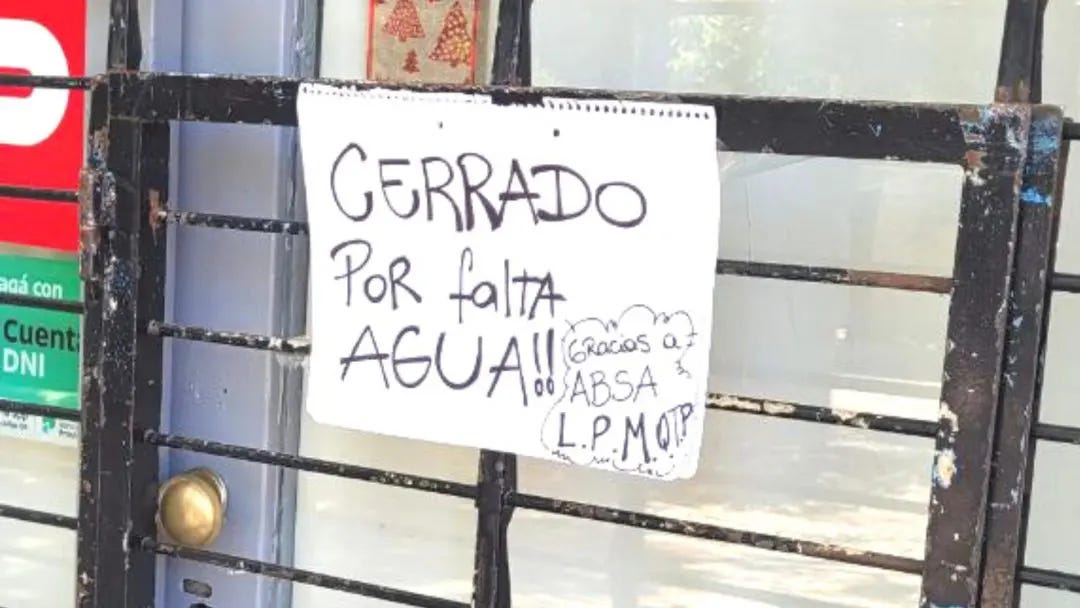 CERRADO
POR falTA
AGUA!!
GRacias a
ABSA
L.P.M.QTP
agá con
Cuent
DNI